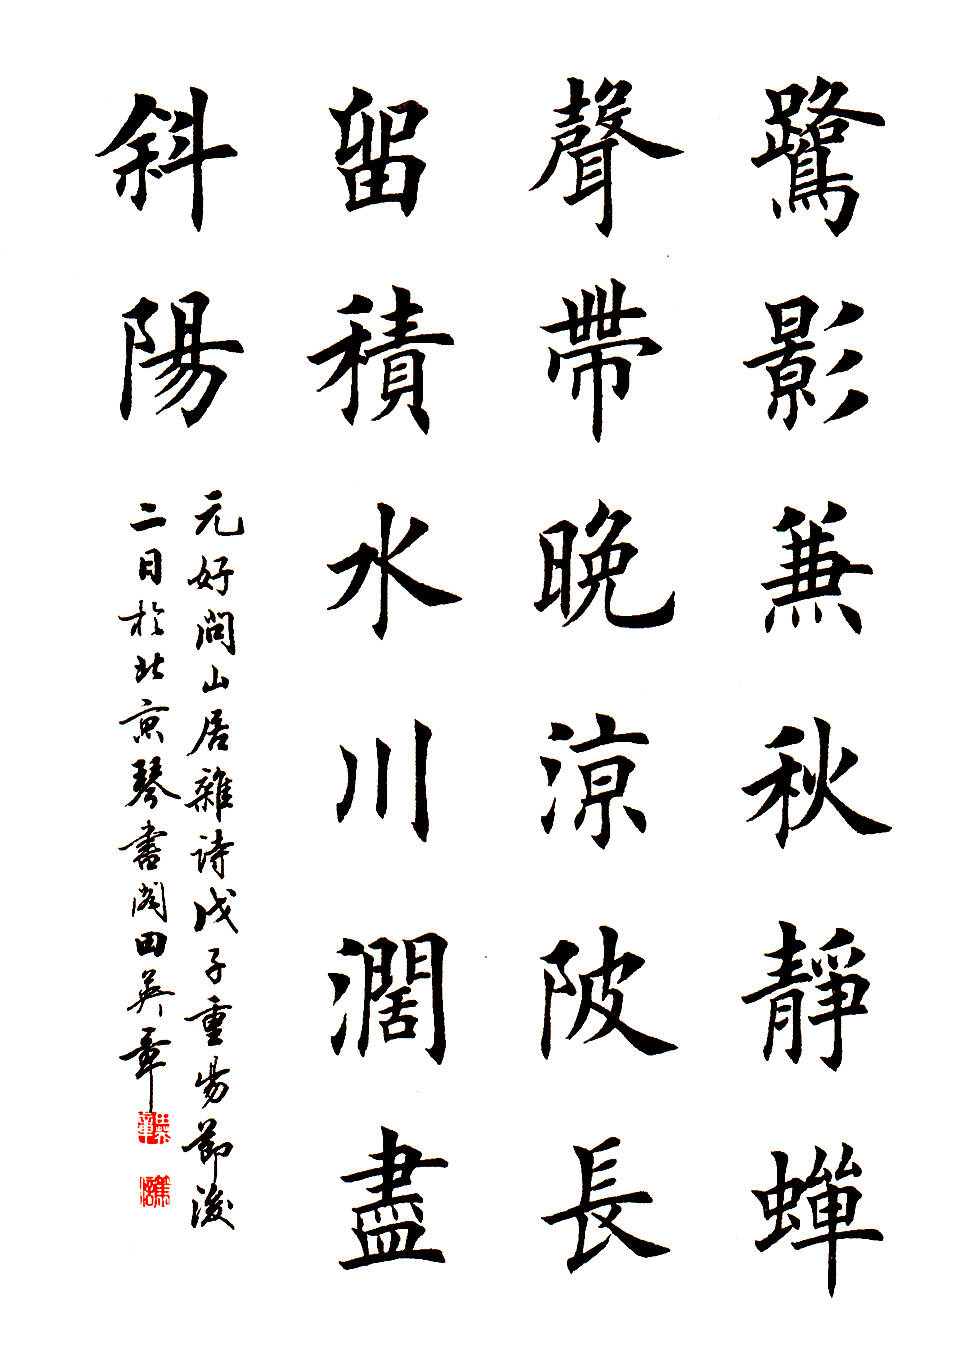 鷺影兼秋靜蟬
聲帶晚涼陂長
留積水川濶盡
斜陽
元好問山居雜詩戊子重陽節後
二日於北京琴書閣田英章